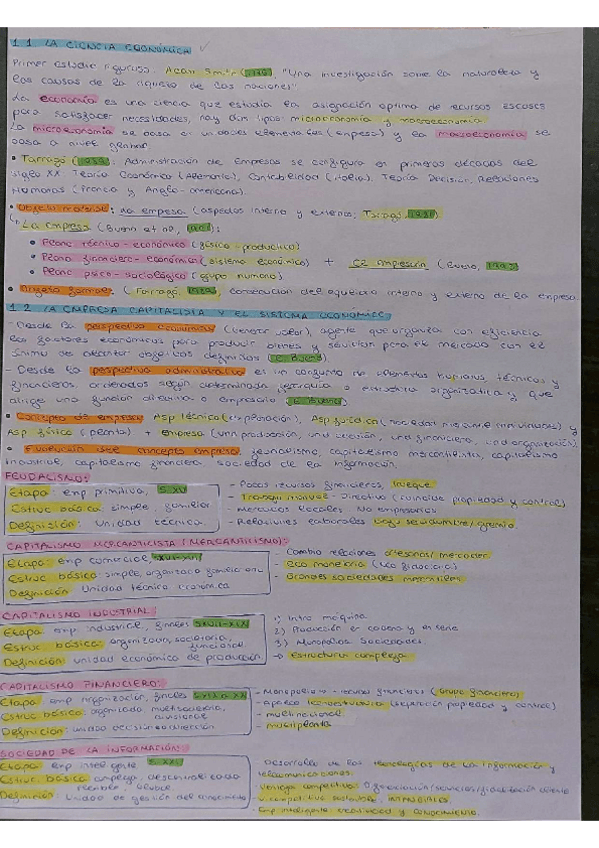 1.1 LA CIENCIA ECONÓMICA
Primer estudio riguroso. "Una investigación sobre la naturaleza y
las causas de la riqueza de las naciones"
La economía es una ciencia que estudia la asignación optima de recursos escasos
para satisfacer necesidades, hay dos tipos microeconomía y macroeconomía.
La microeconomía se basa en unidades elementales (empresa) y la macroeconomía se
basa a nivel general.
• Tarragó: Administración de Empresas se configura en primeras décadas del
siglo XX. Teoría Económica (Alemania), Contabilidad (Italia). Teoría Decisión, Relaciones
Humanas (Francia y Anglo-americana).
• Objeto material: la empresa (aspectos interno y externos; Tarragó,
La empresa (Bueno et al,
• Plano técnico-económico (físico-productivo)
• Plano financiero-económico (sistema económico) +
• Plano psico-sociológico (grupo humano)
• (Tarragó, consecución del equilibrio interno y externo de la empresa.
1.2 LA EMPRESA CAPITALISTA Y EL SISTEMA ECONÓMICO
- Desde la perspectiva económica (generar valor), agente que organiza con eficiencia
los factores económicos para producir bienes y servicios para el mercado con el
ánimo de alcanzar objetivos definidos (E. Bueno).
- Desde la perspectiva administrativa es un conjunto de elementos humanos, técnicos y
financieros, ordenados según determinada jerarquía o estructura organizativa y que
dirige una función directiva o empresario (E. Bueno).
• Concepto de empresa: Asp técnico (explotación), Asp jurídico (sociedad
Asp físico (planta) + Empresa (und producción, und decisión, und financiera, und organización).
• Evolución del concepto empresa: feudalismo, capitalismo mercantilista, capitalismo
industrial, capitalismo financiero, sociedad de la información.
FEUDALISMO:
Etapa: emp primitiva, S.XV
Estruc básica: simple, familiar
Definición: Unidad técnica
- Pocos recursos financieros, trueque
- Trabajo manual - Directivo (coincide propiedad y control)
- Mercados locales. No empresarios
- Relaciones laborales bajo servidumbre/gremio.
CAPITALISMO MERCANTILISTA (MERCANTILISMO):
Etapa: emp comercial,
Estruc básica: simple, organizado familiar
Definición: Unidad técnico económica
- Cambio relaciones artesanos/mercader.
- Eco monetaria (eco fiduciaria)
- Grandes sociedades mercantiles
CAPITALISMO INDUSTRIAL
Etapa: emp industrial, finales
Estruc básica: organizada, societaria, funcional
Definición: unidad económica de producción
1) Intro máquina
2) Producción en cadena y en serie
3) Monopolios Sociedades
→ Estructura compleja
CAPITALISMO FINANCIERO:
Etapa: emp organización, finales
Estruc básica: organizada multisocietaria, divisional
Definición: unidad decisión o dirección
- Monopolismo (Grupo financiero)
- Aparece tecnoestructura (separación propiedad y control)
- multinacional
- multiplanta
SOCIEDAD DE LA INFORMACIÓN:
Etapa: emp inteligente S.XXI
Estruc. básica: compleja, descentralizada
flexible, global
Definición: Unidad de gestión del conocimiento
- Desarrollo de las tecnologías de la información y
telecomunicaciones.
- Ventaja competitiva:
v. competitiva sostenible, INTANGIBLES
- Emp inteligente: creatividad y conocimiento.